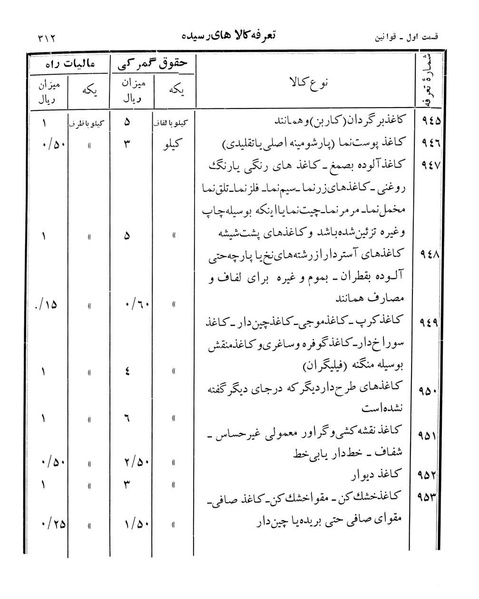 قسمت اول - قوانین تعرفه کالاهای رسیده ۳۱۲
شمارهٔ تعرفه نوع کالا حقوق گمرکی مالیات راه
یکه میزان ریال یکه میزان ریال
۹۴۵ کاغذ برگردان (کاربن) وهمانند کیلو با لفاف ۵ کیلو باظرف ۱
۹۴۶ کاغذ پوست نما (پارشومینه اصلی یا تقلیدی) کیلو ۳ » ۰/۵۰
۹۴۷ کاغذ آلوده بصمغ - کاغذ های رنگی یارنگ
روغنی - کاغذهای زرنما - سیم نما - فلز نما - تلق نما
مخمل نما - مرمر نما - چیت نما یا اینکه بوسیله چاپ
وغیره تزئین شده باشد و کاغذهای پشت شیشه » ۵ » ۱
۹۴۸ کاغذهای آستردار از رشته های نخ یا پارچه حتی
آلوده بقطران - بموم و غیره برای لفاف و
مصارف همانند » ۰/۶۰ » ۰/۱۵
۹۴۹ کاغذ کرپ - کاغذ موجی - کاغذ چین دار - کاغذ
سوراخ دار - کاغذ گوفره وساغری و کاغذ منقش
بوسیله منگنه (فیلیگران) » ۴ » ۱
۹۵۰ کاغذهای طرح دار دیگر که درجای دیگر گفته
نشده است » ۶ » ۱
۹۵۱ کاغذ نقشه کشی و گراور معمولی غیر حساس -
شفاف - خط دار یا بی خط » ۲/۵۰ » ۰/۵۰
۹۵۲ کاغذ دیوار » ۳ » ۱
۹۵۳ کاغذ خشك کن - مقوا خشك کن - کاغذ صافی -
مقوای صافی حتی بریده یا چین دار » ۱/۵۰ » ۰/۲۵